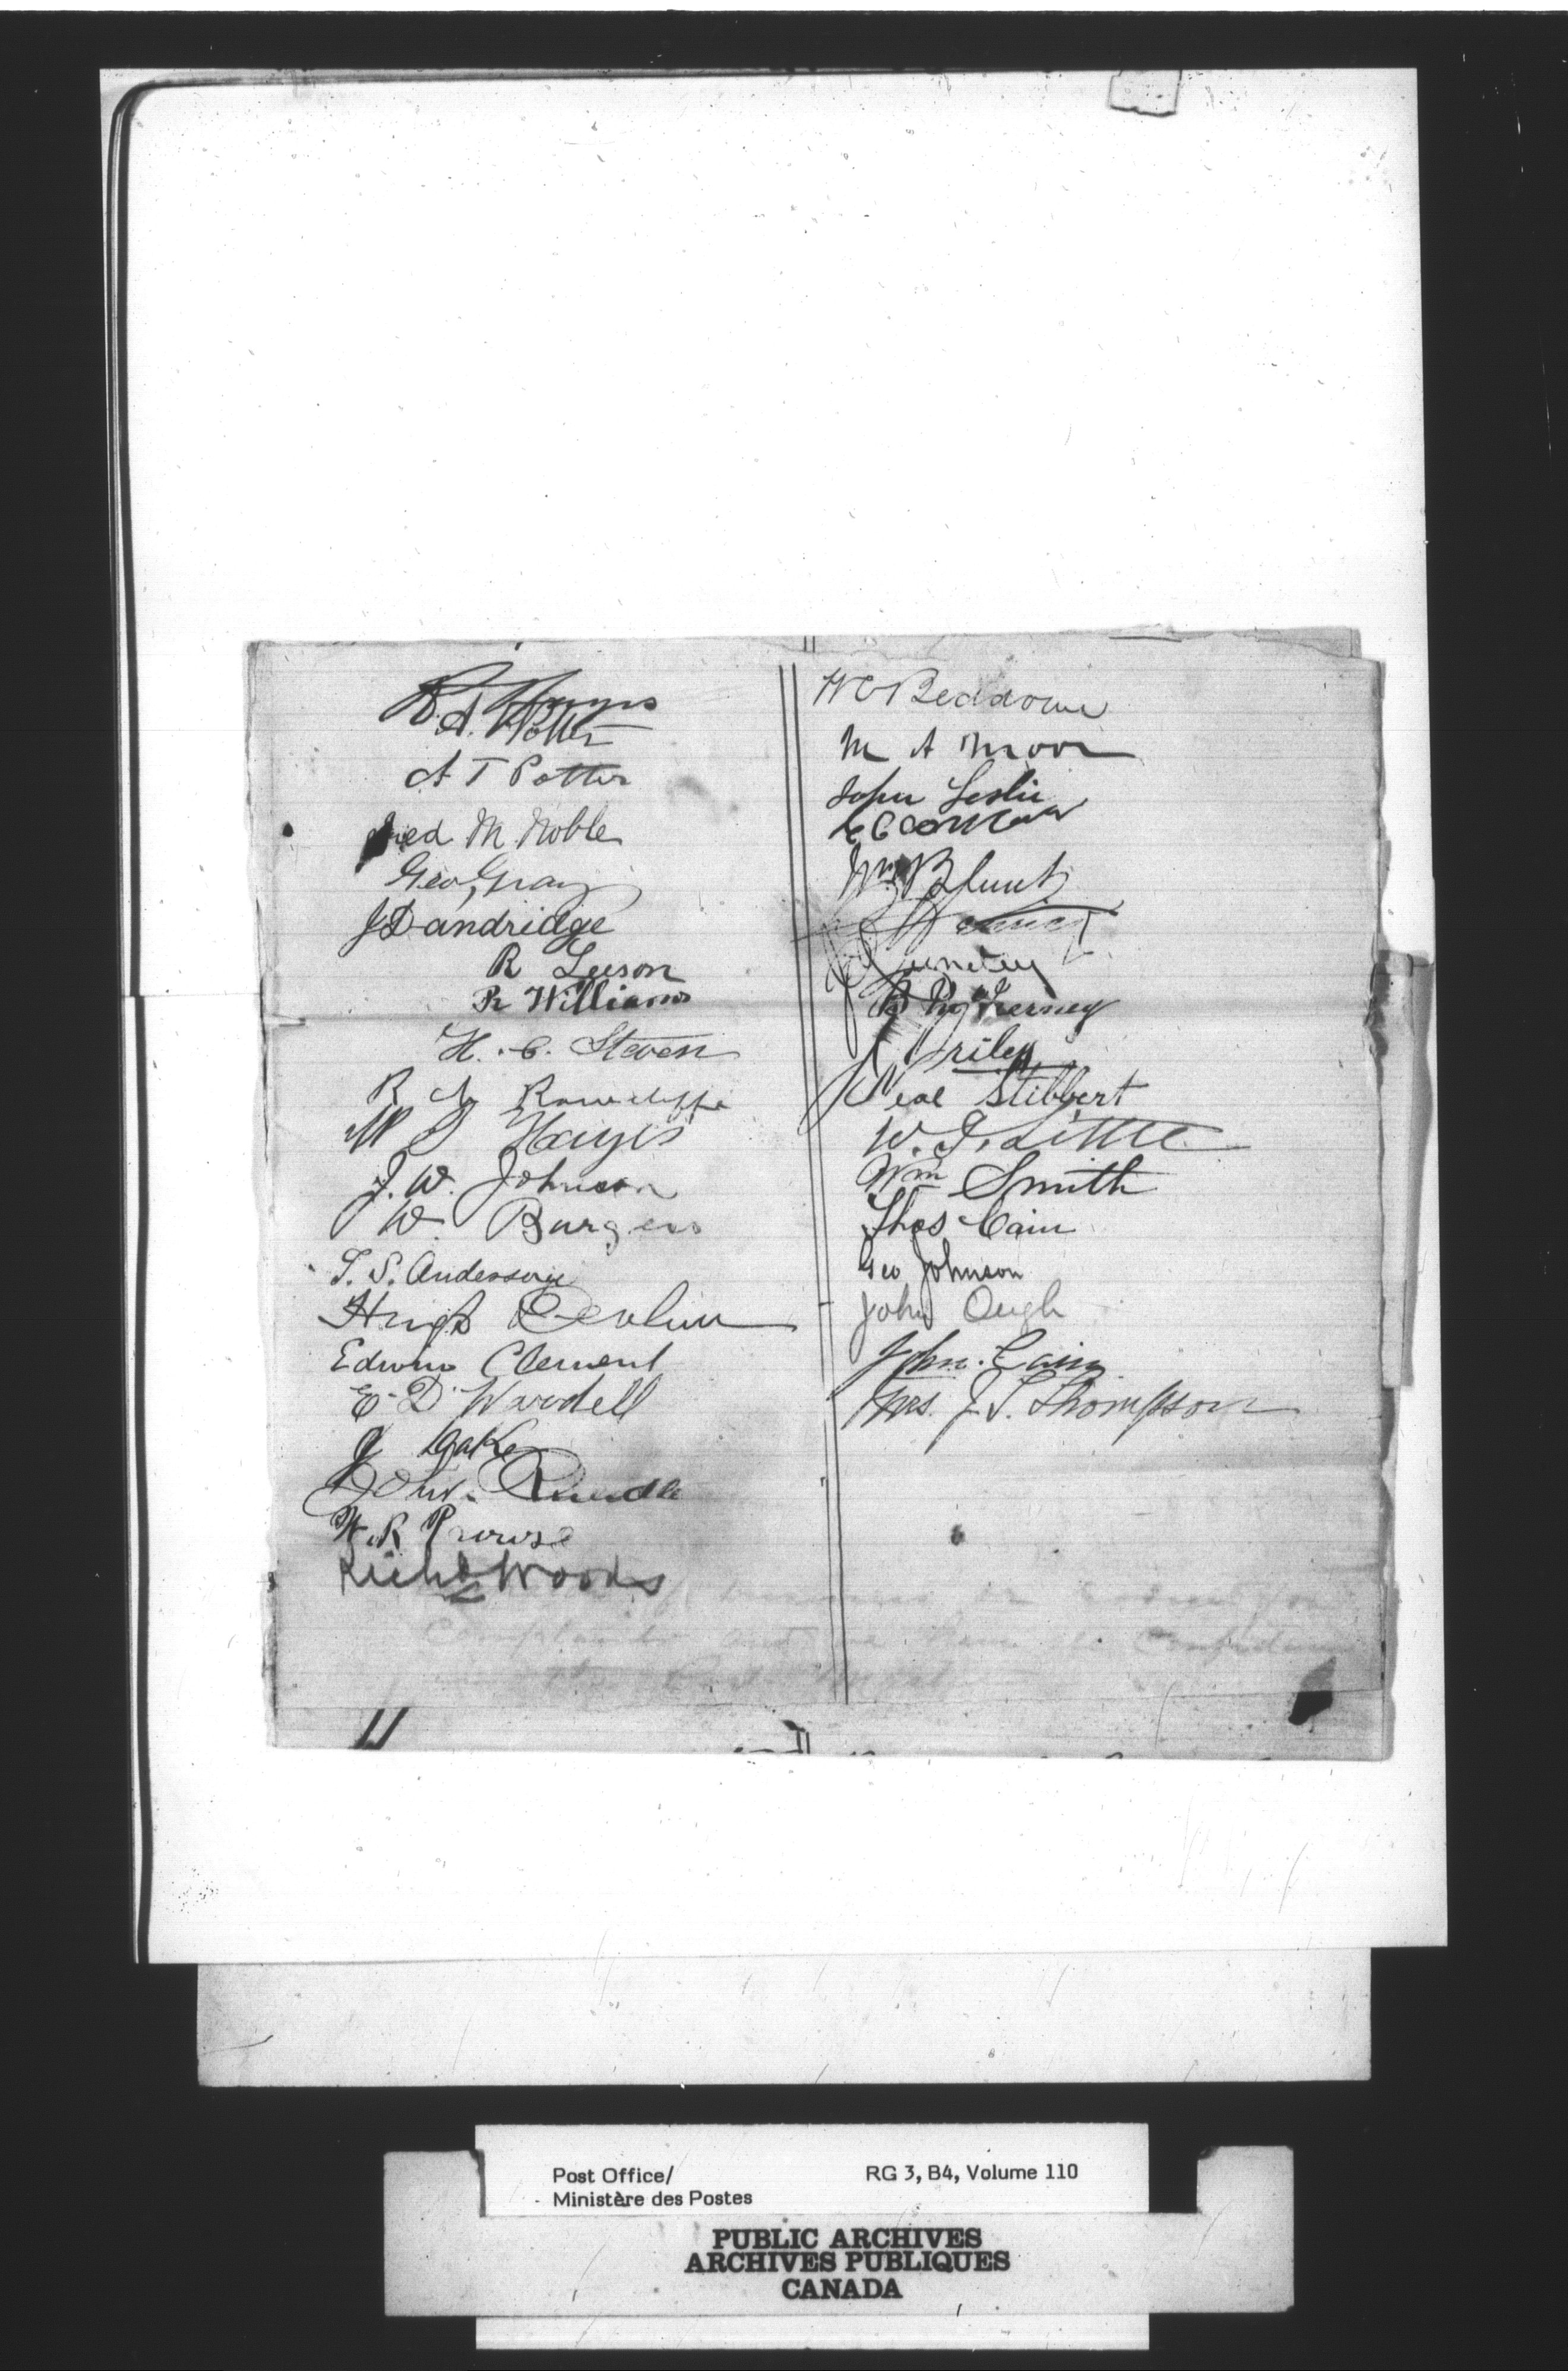 A. Potter
A T Potter
Fred M. Noble
Geo Gray
J Dandridge
R Leeson
R Williams
H. C. Steven
R
W Hayes
J. W. Johnson
W Burgess
T. S. Anderson
Hugh Devlin
Edwin Clement
E D Wardell
J Oake
John Rundle
W. R Prowse
Richd Woods
W C Beddome
M A Moor
John Leslie
Wm Blunt
B
Riley
Neal Stibbert
W. J. Little
Wm Smith
Thos Cain
Geo Johnson
John Ough
John Cain
Mrs. J. S. Thompson
Post Office/
Ministère des Postes
RG 3, B4, Volume 110
PUBLIC ARCHIVES
ARCHIVES PUBLIQUES
CANADA